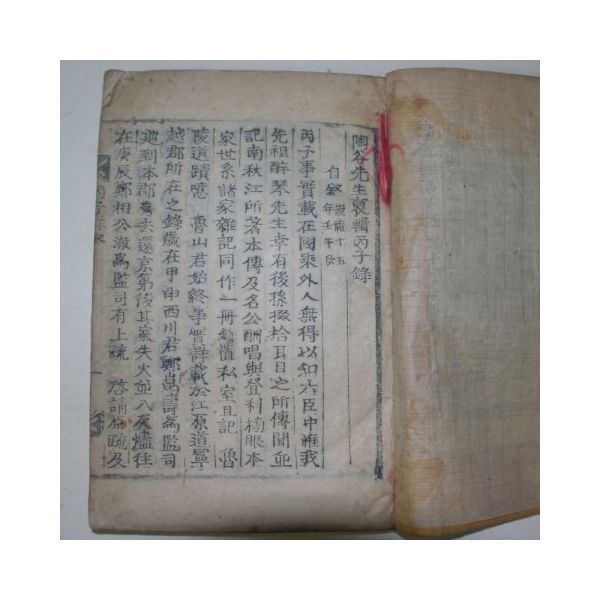 陶谷先生裒輯丙子錄
自叙
丙子事實載在國乘外人無得以知六臣中唯我
先祖醉琴先生幸有後孫掇拾耳目之所傳聞並
記南秋江所著本傳及名公酬唱與登科榜眼本
家世系諸家雜記同作一冊藏置私室且記 魯
陵遺蹟噫 魯山君始終事實詳載於江原道寧
越郡所在之錄歲在甲申西川君鄭崑壽爲監司
巡到本郡 去還京第後其家失火並入灰燼往
在庚辰鄭相公澈爲監司有上疏 啓請 疏及